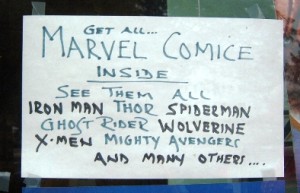 GET ALL...
MARVEL COMICE
INSIDE
SEE THEM ALL
IRON MAN THOR SPIDERMAN
GHOST RIDER WOLVERINE
X-MEN MIGHTY AVENGERS
AND MANY OTHERS....